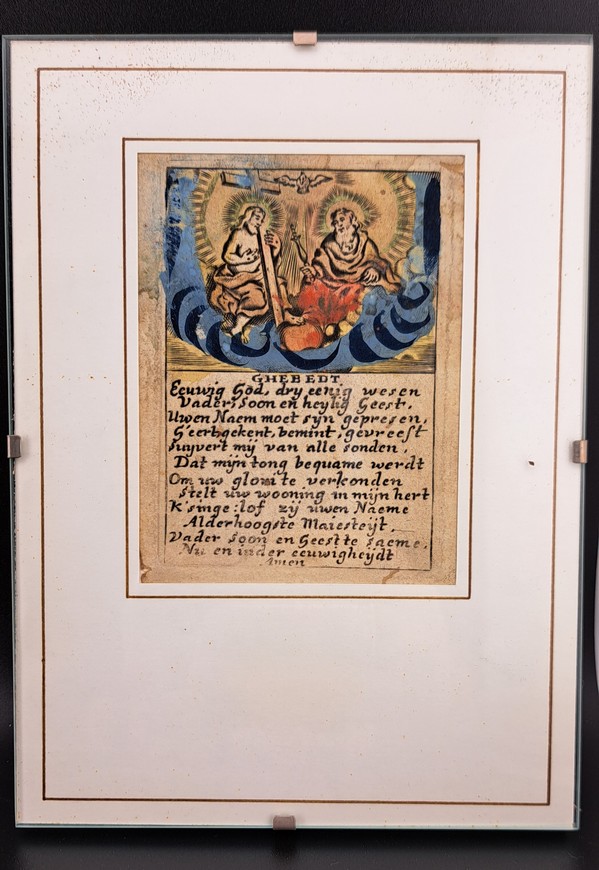 GHEBEDT.
Eeuwig God, dry eenig wesen
Vader, soon en heylig Geest,
Uwen Naem moet syn gepresen,
G'eert, gekent, bemint, gevreest
suyvert my van alle sonden,
Dat mijn tong bequame werdt
Om uw glorii te verkonden
stelt uw wooning in mijn hert
K'singe: lof zij uwen Naeme
Alderhoogste Maiesteijt,
Vader soon en Geest te saeme,
Nu en in der eeuwigheijdt
Amen